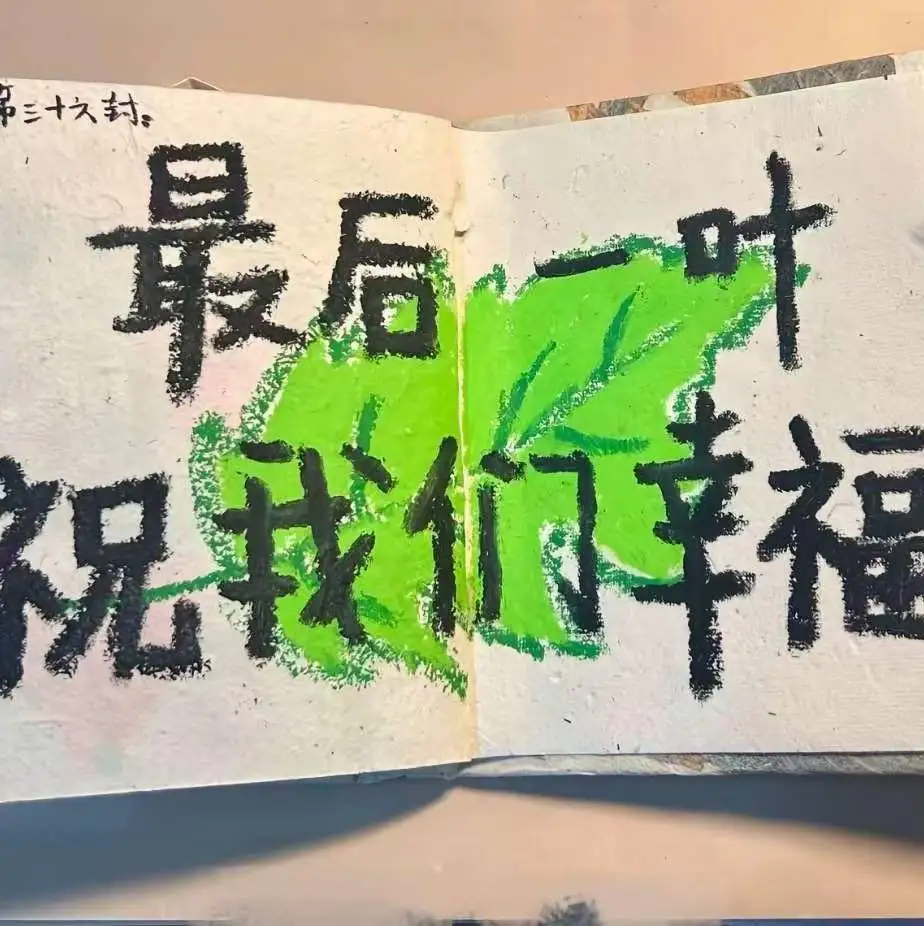 第三十六封：
最后一叶
祝我们幸福